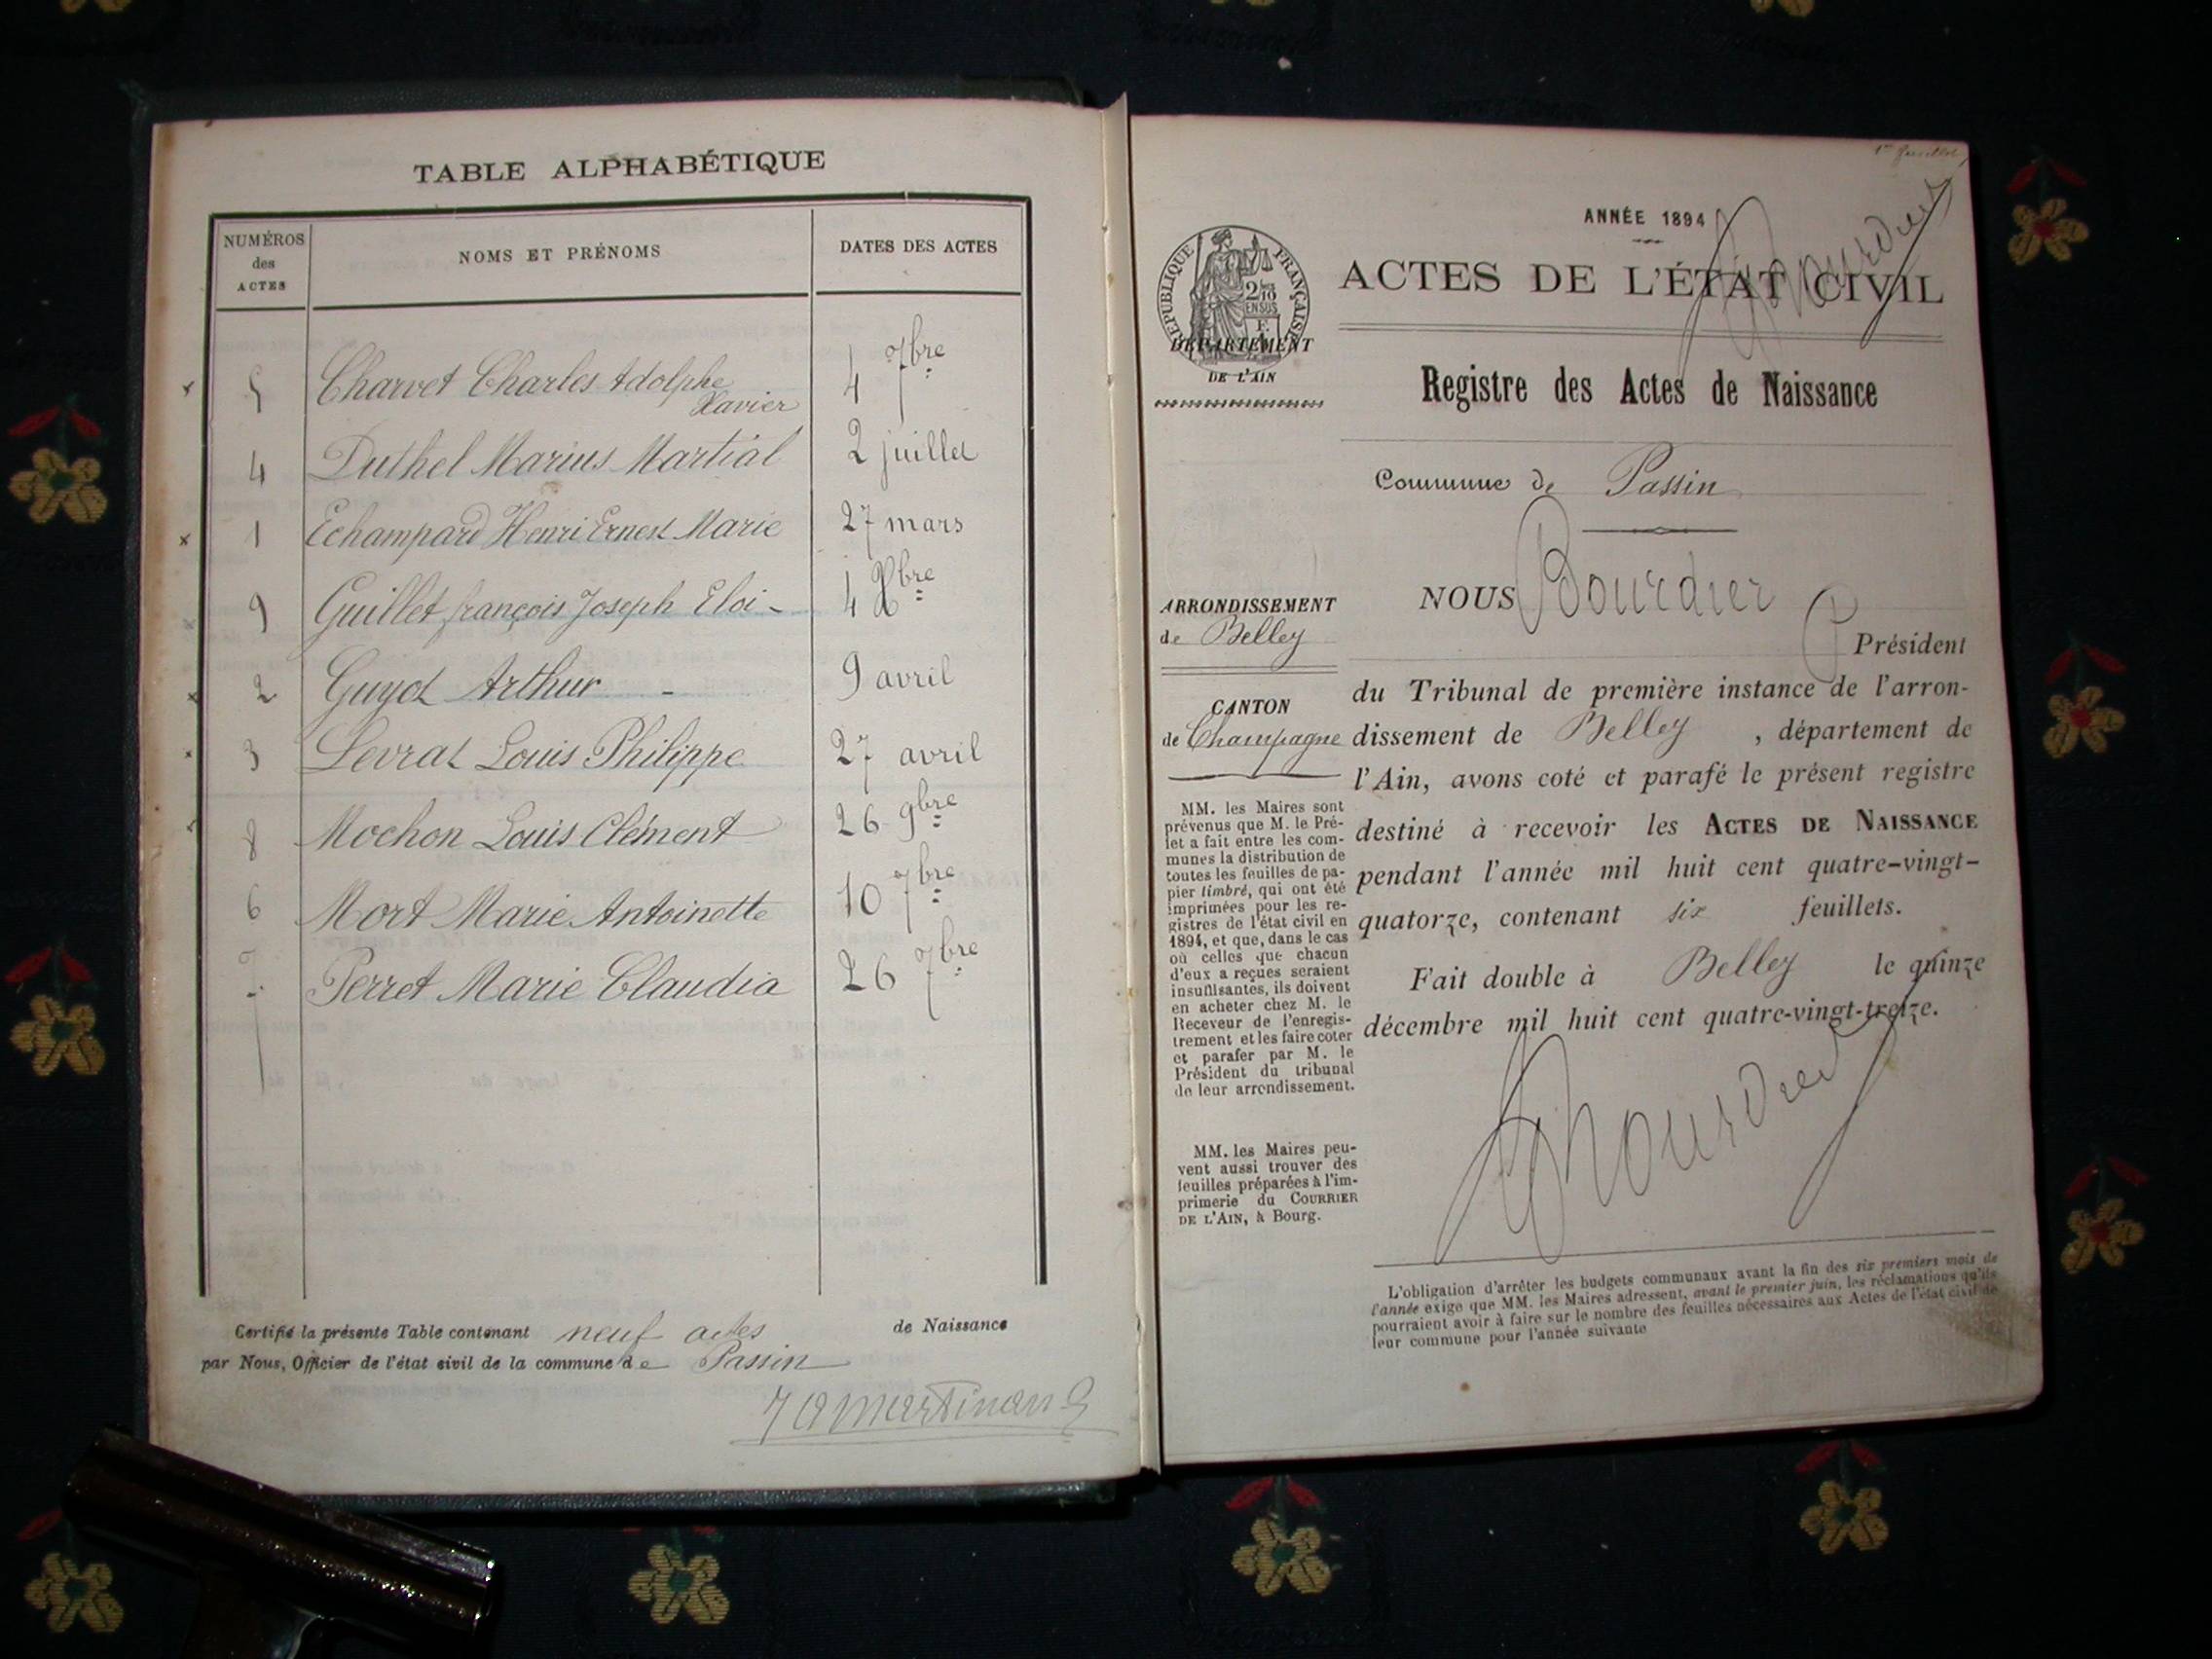 TABLE ALPHABÉTIQUE
NUMÉROS des ACTES
NOMS ET PRÉNOMS
DATES DES ACTES
5 Charvet Charles Adolphe 4 7bre
Xavier
4 Duthel Marius Martial 2 juillet
1 Echampard Henri Ernest Marie 27 mars
9 Guillet françois Joseph Eloi - 4 Xbre
2 Guyot Arthur - 9 avril
3 Levrat Louis Philippe 27 avril
8 Mochon Louis Clément 26 9bre
6 Mort Marie Antoinette 10 7bre
7 Perret Marie Claudia 26 7bre
Certifié la présente Table contenant neuf actes de Naissance
par Nous, Officier de l'état civil de la commune de Passin
ANNÉE 1894
RÉPUBLIQUE FRANÇAISE
2/10
EN SUS
DÉPARTEMENT
DE L'AIN
ACTES DE L'ÉTAT CIVIL
Registre des Actes de Naissance
Commune de Passin
ARRONDISSEMENT
de Belley
CANTON
de Champagne
MM. les Maires sont
prévenus que M. le Pré-
fet a fait entre les com-
munes la distribution de
toutes les feuilles de pa-
pier timbré, qui ont été
imprimées pour les re-
gistres de l'état civil en
1894, et que, dans le cas
où celles que chacun
d'eux a reçues seraient
insuffisantes, ils doivent
en acheter chez M. le
Receveur de l'enregis-
trement et les faire coter
et parafer par M. le
Président du tribunal
de leur arrondissement.
MM. les Maires peu-
vent aussi trouver des
feuilles préparées à l'im-
primerie du COURRIER
DE L'AIN, à Bourg.
NOUS Bourdier
Président
du Tribunal de première instance de l'arron-
dissement de Belley , département de
l'Ain, avons coté et parafé le présent registre
destiné à recevoir les ACTES DE NAISSANCE
pendant l'année mil huit cent quatre-vingt-
quatorze, contenant six feuillets.
Fait double à Belley le quinze
décembre mil huit cent quatre-vingt-treize.
Bourdier
L'obligation d'arrêter les budgets communaux avant la fin des six premiers mois de
l'année exige que MM. les Maires adressent, avant le premier juin, les réclamations qu'ils
pourraient avoir à faire sur le nombre des feuilles nécessaires aux Actes de l'état civil de
leur commune pour l'année suivante